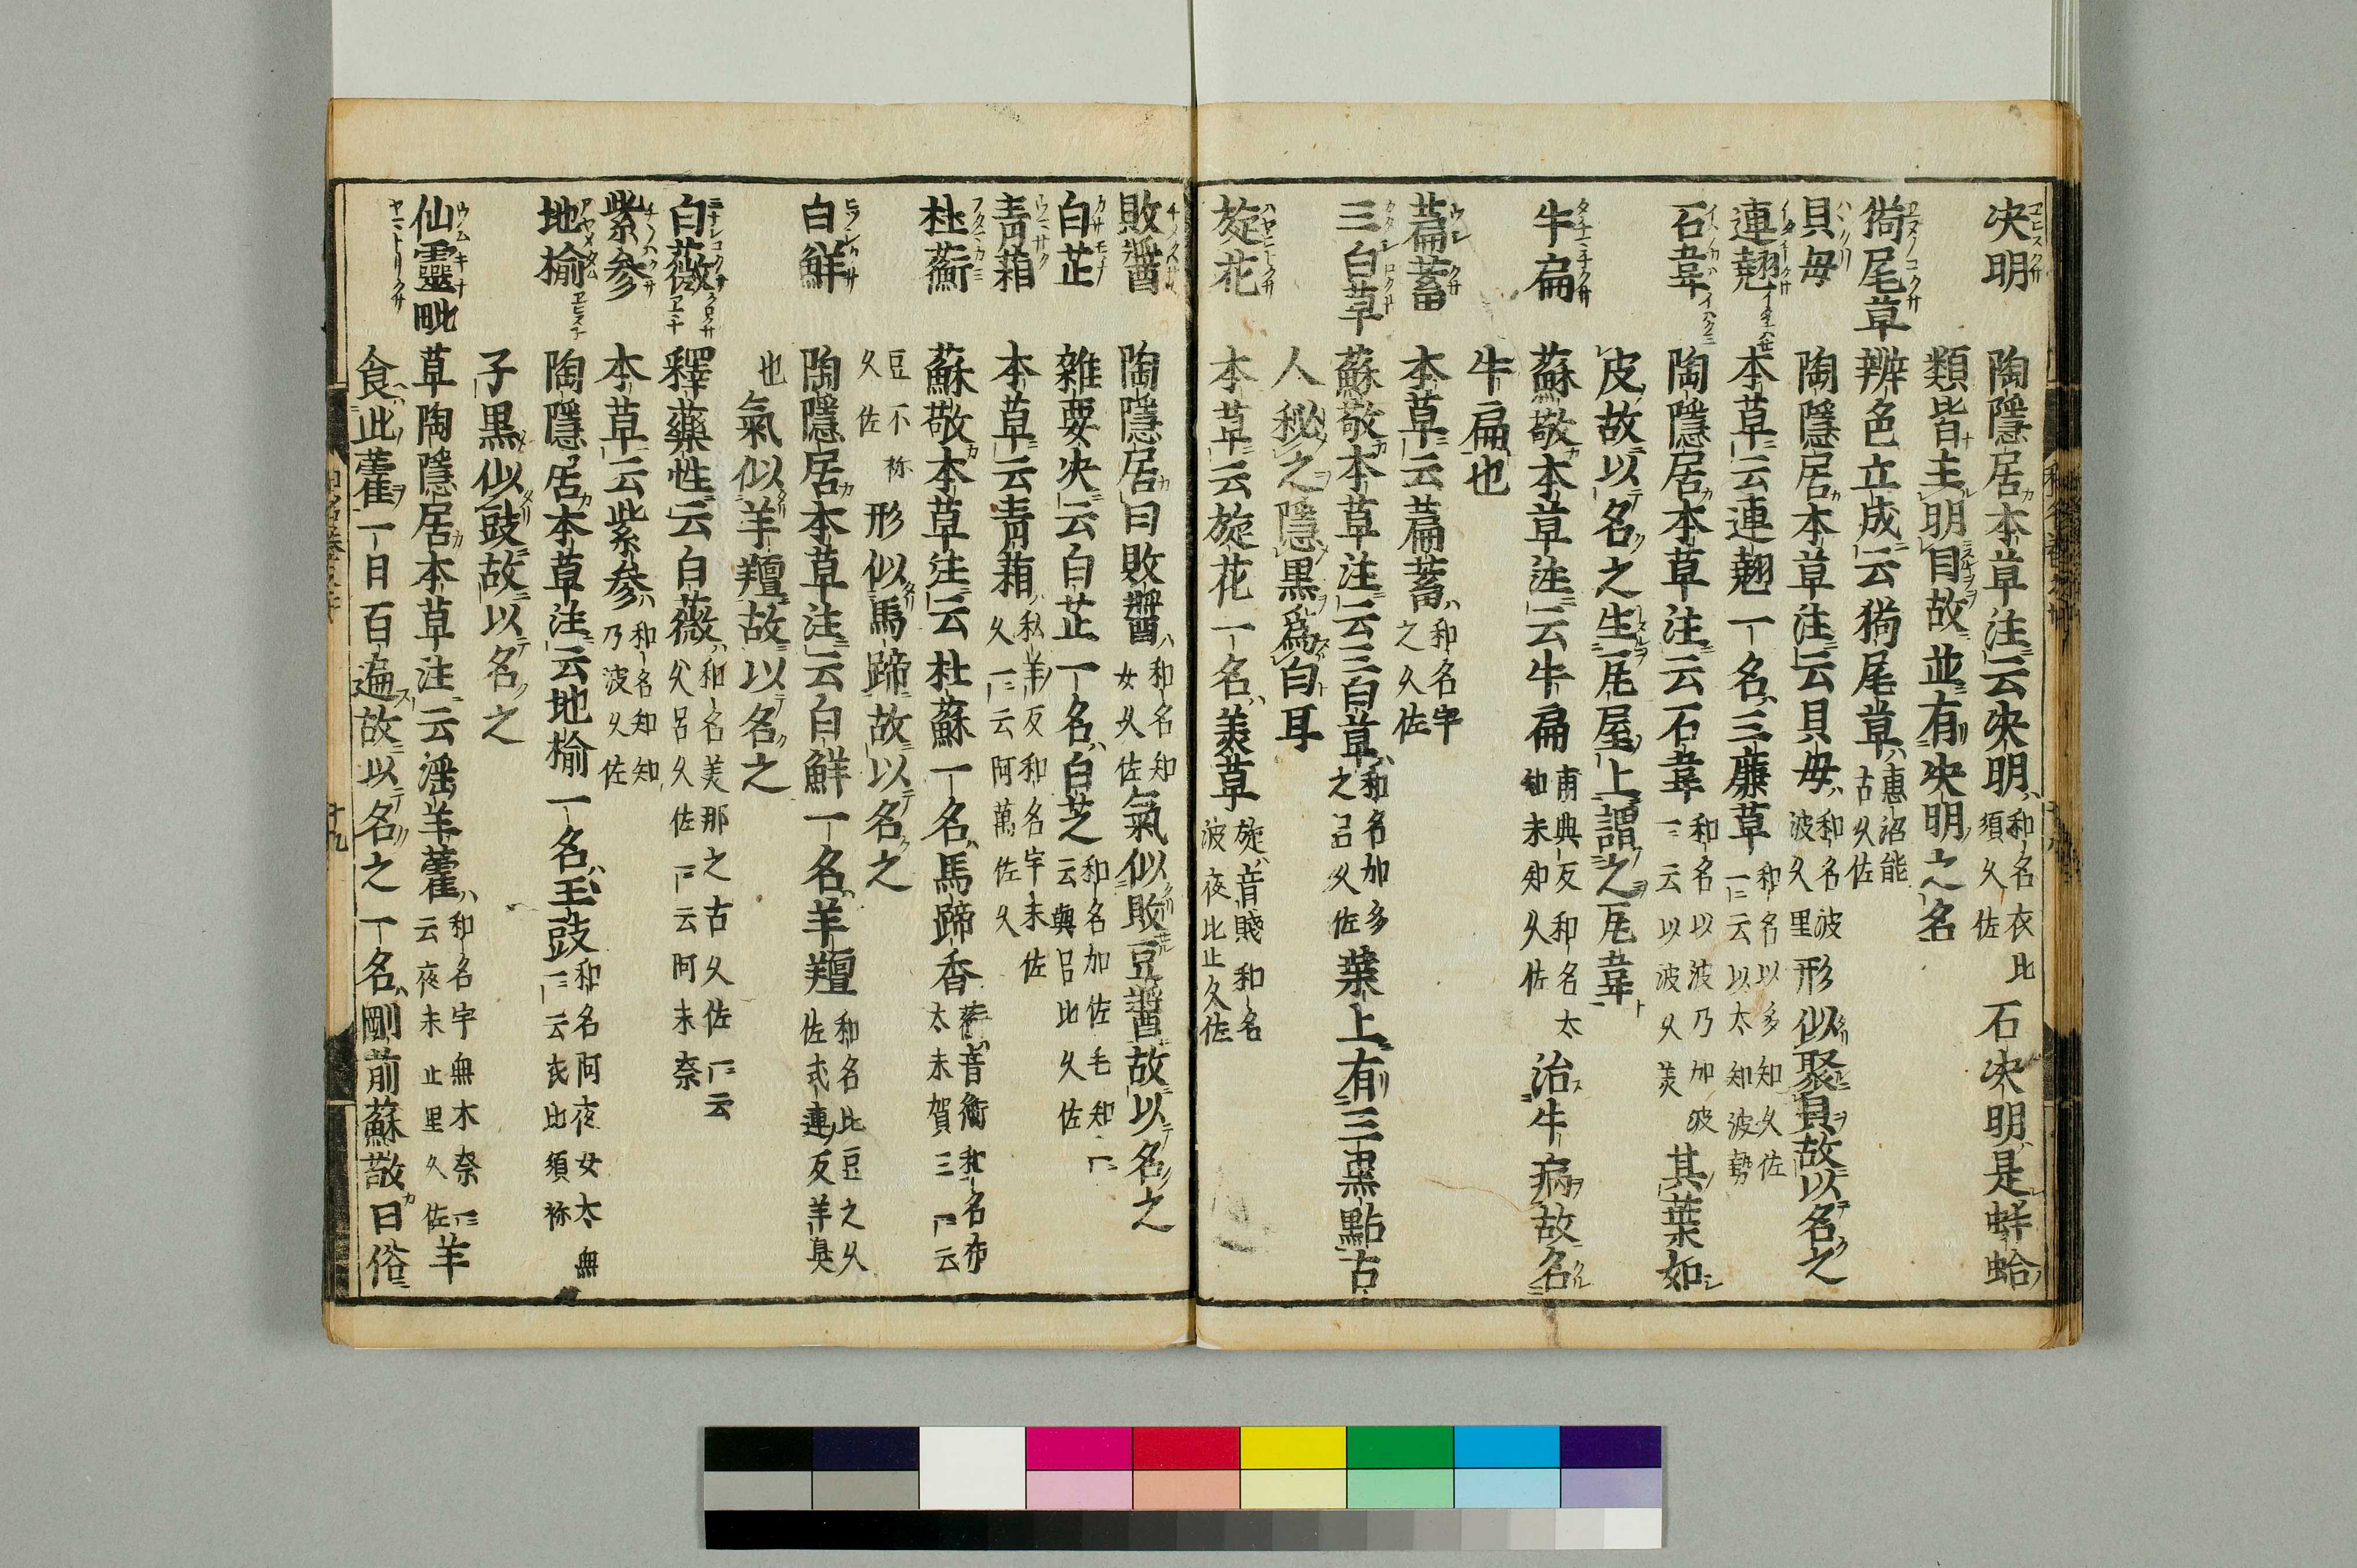 决明 陶隱居本草注云决明和名衣比須久佐石决明是蚌蛤
類皆主明目故並有决明之名
狗尾草 辨色立成云狗尾草惠沼能古久佐
貝毋 陶隱居本草注云貝毋和名波波久里形似聚貝故以名之
連翹 本草云連翹一名三廉草和名以多知久佐一云以太知波勢
石韋 陶隱居本草注云石韋和名以波乃加波一云以波久美其葉如
皮故以名之生瓦屋上謂之瓦韋
牛扁 蘇敬本草注云牛扁甫典反和名太知末知久佐治牛病故名
牛扁也
萹蓄 本草云萹蓄和名宇之久佐
三白草 蘇敬本草注云三白草和名加多之呂久佐葉上有三黒點古
人秘之隱黒爲白耳
旋花 本草云旋花一名美草旋音賤和名波夜比止久佐
敗醬 陶隱居曰敗醬和名知女久佐氣似敗豆醬故以名之
白芷 雜要决云白芷一名白芝和名加佐毛知一云與呂比久佐
青葙 本草云青葙私羊反和名宇末佐久一云阿萬佐久
杜蘅 蘇敬本草注云杜蘇一名馬蹄香蘅音衡和名布太末賀三一云
豆不祢久佐形似馬蹄故以名之
白鮮 陶隱居本草注云白鮮一名羊羶和名比豆之久佐式連反羊臭
也氣似羊羶故以名之
白薇 釋藥性云白薇和名美那之古久佐一云久呂久佐一云阿末奈
紫参 本草云紫参和名知知乃波久佐
地榆 陶隱居本草注云地榆一名玉豉和名阿夜女太無一云衣比須祢
子黒似豉故以名之
仙靈毗 草陶隱居本草注云滛羊藿和名宇無木奈一云夜末止里久佐羊
食此藿一日百遍故以名之一名剛前蘇敬曰俗
十九